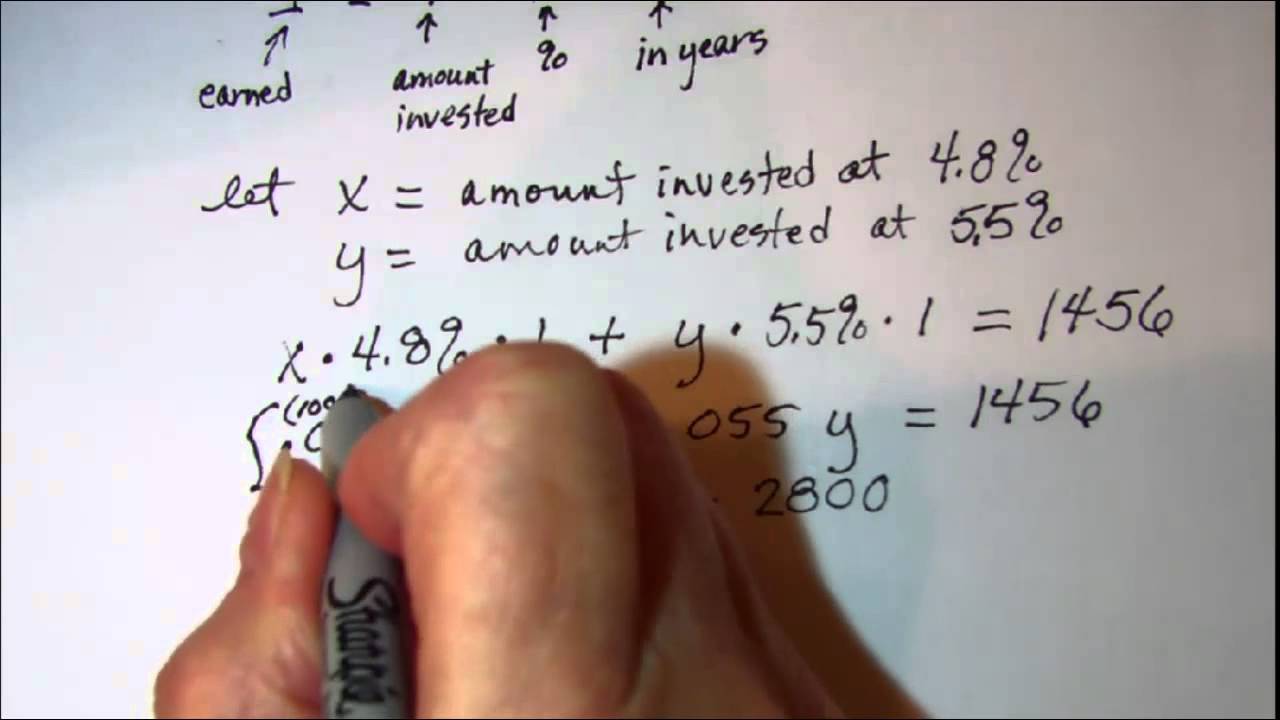 ↑ ↑ ↑ ↑
earned amount % in years
invested
let x = amount invested at 4.8%
y = amount invested at 5.5%
x · 4.8% · 1 + y · 5.5% · 1 = 1456
(100
055 y = 1456
2800
Sharpie